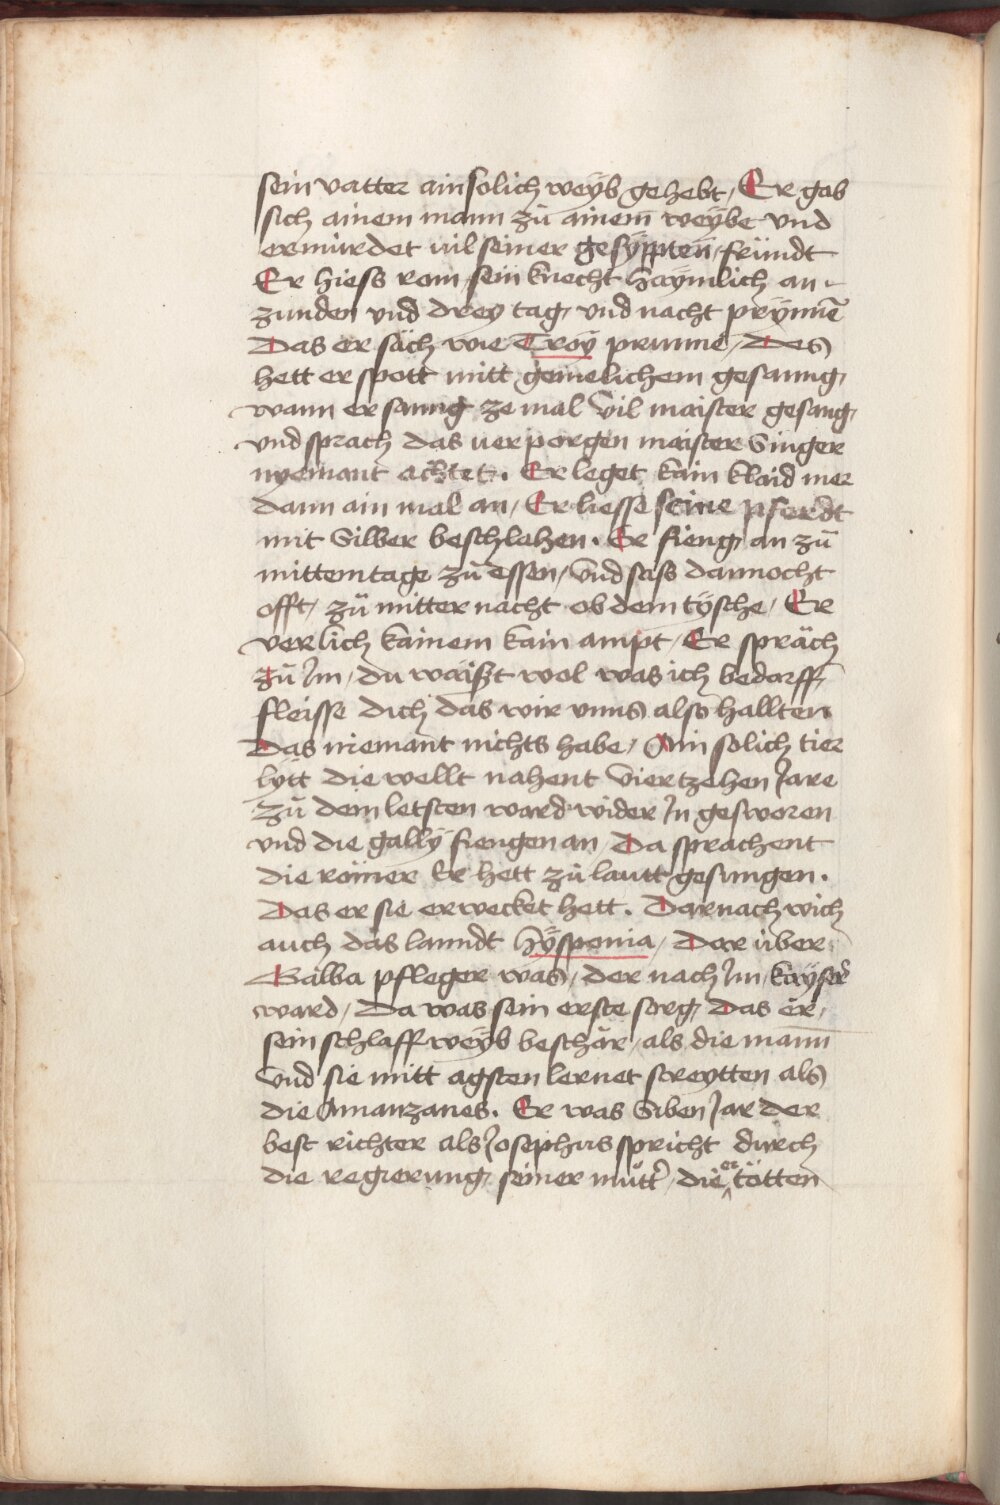 sein vatter ain solich weÿb gehebt / Er gab
sich ainem mann zů ainem weÿbe vnd
ermürdet vil seiner gesÿppten / fründt
Er hiess rom / sein knecht haÿmlich an-
zunden vnd dreÿ tag / vnd nacht prÿnnē
Das er säch wie Troÿ prunne / Des
hett er spott mitt gemelichem gesanng /
wann er sanng ze mal vil maister gesang /
vnd sprach das verporgen maister Singer
nyemant achtet. Er leget kain klaid mer
dann ain mal an / Er liesse seine pferdt
mit Silber beschlahen. Er fieng / an zů
mittemtage zů essen / vnd sass dannocht
offt / zů mitternacht ob dem tÿsche / Er
verlich kainem kain ampt / Er spräch
zů Jm / du waißt wol was ich bedarff /
fleisse dich das wir vnns also hallten
Das niemant nichts habe / Ain solich tier
lytt die wellt nahent viertzehen Jare
zů dem letsten ward wider Jn gesworen
vnd die gallÿ fiengen an / Da sprachent
die römer Er hett zů lautt gesungen.
Das er sie erwecket hett. Darnach wich
auch das lanndt hÿspania / Dar über
Galba pfleger was / der nach Jm kaÿser
ward / Da was sein erste sorg / Das er /
sein schlaffweÿb beschär / als die mann
Vnd sie mitt agsten lernet streytten als
die Amanzanes. Er was Siben Jar der
best richter als Josephus spricht durch
die regierung / seiner mŭtt' / die er tötten